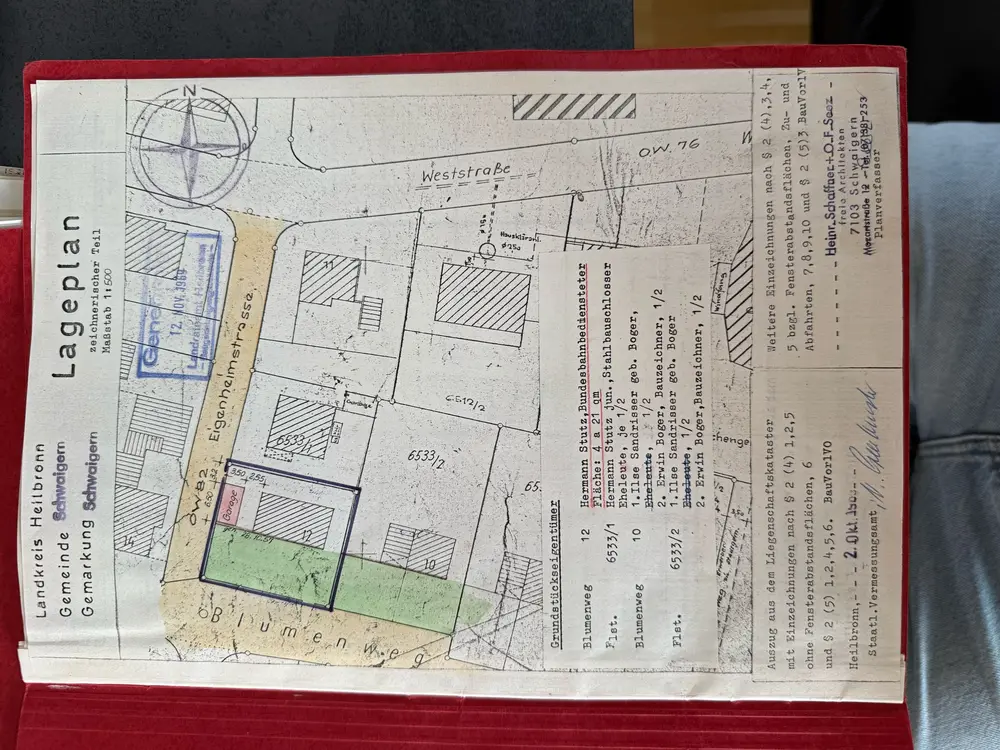 Landkreis Heilbronn
Gemeinde Schwaigern
Gemarkung Schwaigern
Lageplan
zeichnerischer Teil
Maßstab 1:500
N
12. NOV. 1989
Weststraße
OW. 76
Eigenheimstrasse
OW 82
Blumenweg
Garage
3,50
2,55
12
11
10
14
6533/1
6533/2
6512/2
Grundstückseigentümer
Blumenweg 12 Hermann Stutz, Bundesbahnbediensteter
Fläche: 4 a 21 qm
Flst. 6533/1 Hermann Stutz jun., Stahlbauschlosser
Eheleute, je 1/2
Blumenweg 10 1. Ilse Sandrisser geb. Boger,
Eheleute, 1/2
2. Erwin Boger, Bauzeichner, 1/2
Flst. 6533/2 1. Ilse Sandrisser geb. Boger
Eheleute, 1/2
2. Erwin Boger, Bauzeichner, 1/2
Auszug aus dem Liegenschaftskataster
mit Einzeichnungen nach § 2 (4) 1,2,5
ohne Fensterabstandsflächen, 6
und § 2 (5) 1,2,4,5,6. BauVorlVo
Heilbronn, 2. Okt.
Staatl. Vermessungsamt
Weitere Einzeichnungen nach § 2 (4),3,4,
5 bzgl. Fensterabstandsflächen, Zu- und
Abfahrten, 7,8,9,10 und § 2 (5)3 BauVorlV
Heinr. Schaffner + O. F. Seez
freie Architekten
7103 Schwaigern
Planverfasser